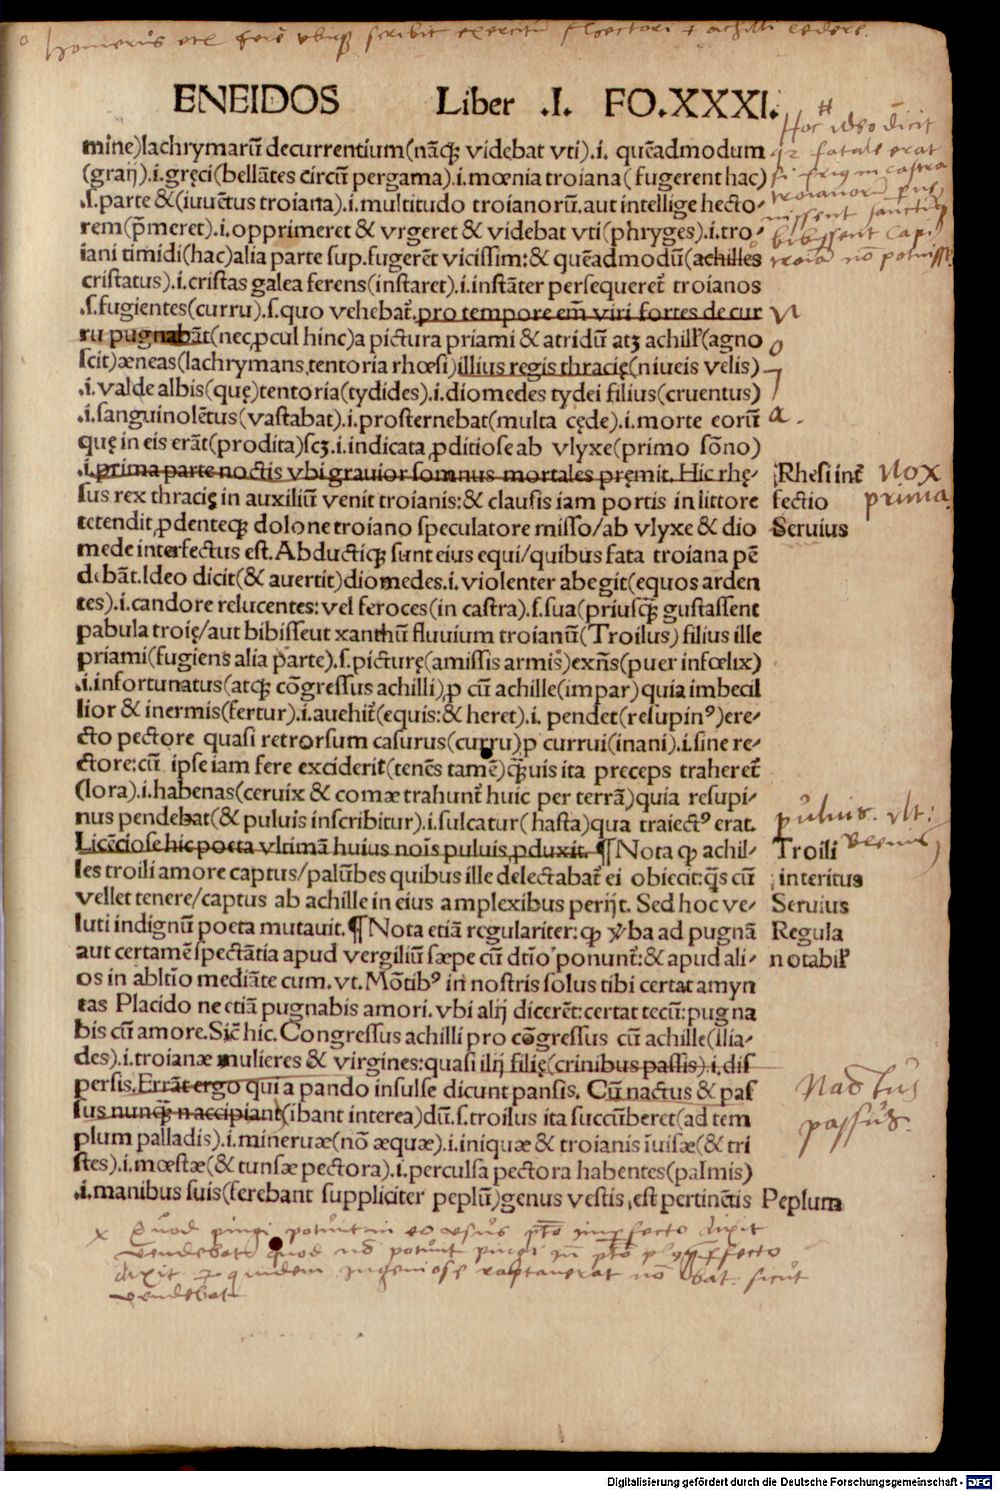 Homerus etc fere ubique scribit exercitū Hectori & achilli cedere.
ENEIDOS Liber .I. FO.XXXI.
mine)lachrymarū decurrentium(nāq; videbat vti).i. quēadmodum
(graij).i.gręci(bellātes circū pergama).i.mœnia troiana(fugerent hac)
.ſ.parte &(iuuētus troiana).i.multitudo troianorū.aut intellige hecto-
rem(p̄meret).i.opprimeret & vrgeret & videbat vti(phryges).i.tro-
iani timidi(hac)alia parte sup.fugerēt viciſſim:& quēadmodū(achilles
cristatus).i.cristas galea ferens(instaret).i.instāter persequeret̄ troianos
.ſ.fugientes(curru).ſ.quo vehebat̄.pro tempore em̄ viri fortes de cur
ru pugnabāt(nec ꝓcul hinc)a pictura priami & atridū atꝫ achill̓(agno
ſcit)æneas(lachrymans,tentoria rhœsi)illius regis thracię(niueis velis)
.i.valde albis(quę)tentoria(tydides).i.diomedes tydei filius(cruentus)
.i.sanguinolētus(vastabat).i.prosternebat(multa cęde).i.morte eorū
quę in eis erāt(prodita)scꝫ.i.indicata ꝓditiose ab vlyxe(primo sōno)
.i.prima parte noctis vbi grauior somnus mortales pręmit. Hic rhę-
sus rex thracię in auxiliū venit troianis:& clausis iam portis in littore
tetendit,ꝓdenteq; dolone troiano speculatore misso/ab vlyxe & dio
mede interfectus est.Abductiq; sunt eius equi/quibus fata troiana pē
debāt.Ideo dicit(& auertit)diomedes.i.violenter abegit(equos arden
tes).i.candore relucentes:vel feroces(in castra).ſ.sua(priusq̄ gustassent
pabula troię/aut bibisseut xanthū fluuium troianū(Troilus)filius ille
priami(fugiens alia parte).ſ.picturę(amissis armis)exn̄s(puer infœlix)
.i.infortunatus(atq; cōgressus achilli)ꝓ cū achille(impar)quia imbecil
lior & inermis(fertur).i.auehit̄(equis:& heret).i. pendet(resupinꝰ)ere-
cto pectore quasi retrorsum casurus(curru)ꝓ currui(inani).i.sine re-
ctore:cū ipse iam fere exciderit(tenēs tamē)q̄uis ita preceps traheret̄
(lora).i.habenas(ceruix & comæ trahunt̄ huic per terrā)quia resupi-
nus pendebat(& puluis inscribitur).i.sulcatur(hasta)qua traiectꝰ erat.
Licēciose hic poeta vltimā huius nois puluis ꝓduxit. ¶Nota ꝙ achil-
les troili amore captus/palūbes quibus ille delectabat̄ ei obiecit:q̄s cū
vellet tenere/captus ab achille in eius amplexibus perijt. Sed hoc ve-
luti indignū poeta mutauit.¶ Nota etiā regulariter:ꝙ v̓ba ad pugnā
aut certamē spectātia apud vergiliū sæpe cū dtīo ponunt̄:& apud ali-
os in abltīo mediāte cum.vt.Mōtibꝰ in nostris solus tibi certat amyn
tas Placido nectiā pugnabis amori.vbi alij dicerēt:certat tecū:pugna
bis cū amore.Sic hic.Congressus achilli pro cōgressus cū achille(Ilia-
des).i.troianæ mulieres & virgines:quasi ilij filię(crinibus passis).i.dis
persis.Errāt ergo qui a pando insulse dicunt pansis. Cū nactus & pas
sus nunq̄ n accipiant(ibant interea)dū.ſ.troilus ita succūberet(ad tem
plum palladis).i.mineruæ(nō æquæ).i.iniquæ & troianis īuisæ(& tri
stes).i.mœstæ(& tunsæ pectora).i.perculsa pectora habentes(palmis)
.i.manibus suis(ferebant suppliciter peplū)genus vestis,est pertinētis
Hoc ideo dicit
qz fatale erat
si prius in castra
troianorū
nissent
bibissent capi
troia nō potuisse
Rhesi int̄
fectio
Seruius
Nox
prima.
puluis. vlt:
Troili
interitus
Seruius
Regula
notabil̓
Nactus
passus.
Peplum
x Quod pingi potuit in eo versus p̄to imperfecto dixit
vendebat quod nō potuit pingi in p̄to plusqperfecto
dixit quidem ingeniose raptauerat nō bat sicut
vendebat
Digitalisierung gefördert durch die Deutsche Forschungsgemeinschaft - DFG